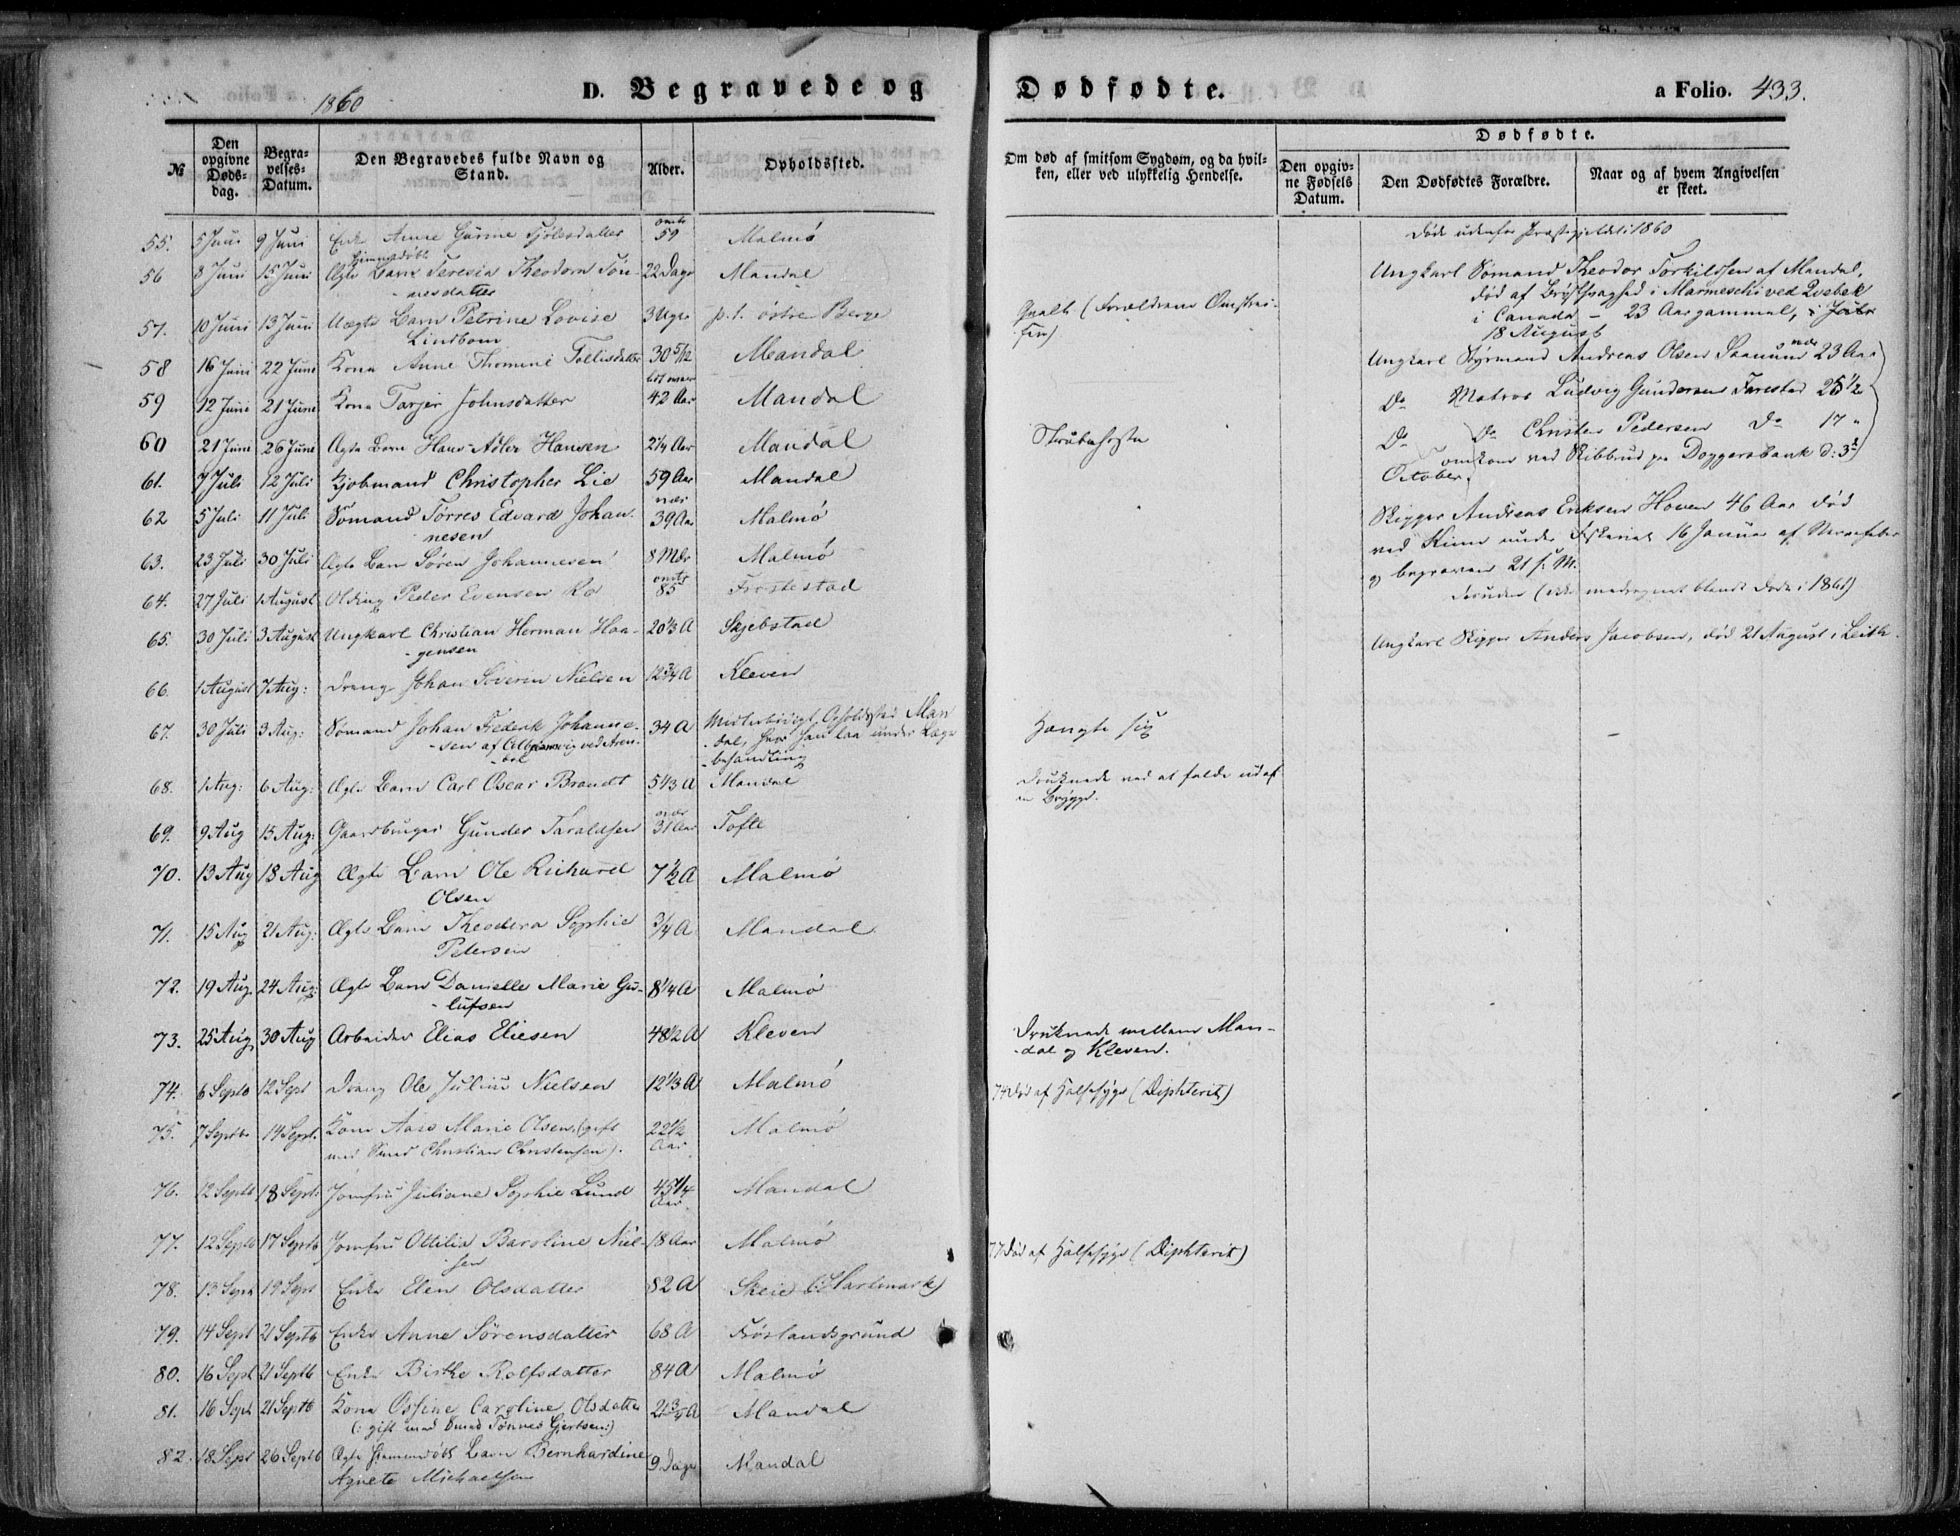 1860
D. Begravede og Dødfødte.
a Folio. 433.
№
Den opgivne Døds-dag.
Begra-velses-Datum.
Den Begravedes fulde Navn og Stand.
Alder.
Opholdssted.
Om død af smitsom Sygdom, og da hvil-ken, eller ved ulykkelig Hendelse.
Dødfødte.
Den opgiv-ne Fødsels Datum.
Den Dødfødtes Forældre.
Naar og af hvem Angivelsen er skeet.
55. 5 Juni 9 Juni Enke Anne Gurine Fjølesdatter omtr 59 Malmø
56 8 Juni 15 Juni Ægte hjemmedøbt Barn Teresia Theodora Tøn-nesdatter 22 Dage Mandal
57. 10 Juni 13 Juni Uægte Barn Petrine Lovise Lindbom 3 Uger p. t. østre Berge
58 16 Juni 22 Juni Kone Anne Thomine Tollisdatter 30 5/12 Mandal
59 12 Juni 21 Juni Kone Tarjer Johnsdatter 42 Aar Mandal
60 21 Juni 26 Juni Ægte Barn Hans Adler Hansen 2 1/4 Aar Mandal Strubehoste
61. 7 Juli 12 Juli Kjøbmand Christopher Lie 59 Aar Mandal
62 5 Juli 11 Juli Sømand Tørres Edvard Johan-nesen nær 39 Aar Malmø
63. 23 Juli 30 Juli Ægte Barn Søren Johannesen 8 Mdr Malmø
64. 27 Juli 1 August Olding Peder Evensen Ro omtr 85 Frostestad
65. 30 Juli 3 August Ungkarl Christian Herman Haa-gensen 20 1/3 A Skjebstad
66. 1 August 7 Aug: Dreng Johan Severin Nielsen 12 3/4 A Kleven
67. 30 Juli 3 Aug: Sømand Johan Frederik Johanne-sen af ved Aren-dal 34 A Midlertidigt Opholdssted Man-dal, hvor han laa under Læge-behandling Hængte sig
68. 1 Aug: 6 Aug: Ægte Barn Carl Oscar Brandt 5 1/3 A Mandal Druknede ved at falde ud af en Brygge.
69. 9 Aug 15 Aug: Gaardbruger Gunder Taraldsen nær 31 Aar Tofte
70. 13 Aug 18 Aug Ægte Barn Ole Richard Olsen 7 1/2 A Malmø
71. 15 Aug 21 Aug: Ægte Barn Theodora Sophie Petersen 3/4 A Mandal
72. 19 Aug. 24 Aug: Ægte Barn Danielle Marie Gu-lufsen 8 1/4 A Malmø
73. 25 Aug. 30 Aug Arbeider Elias Eliesen 48 1/2 A Kleven Druknede mellem Man-dal og Kleven.
74. 6 Septb 12 Sept Dreng Ole Julius Nielsen 12 1/3 A Malmø 74 Død af Halssyge (Diphterit)
75. 7 Septb. 14 Sept. Kone Aase Marie Olsen, (gift med Smed Christian Christensen). 22 1/2 Aar Malmø
76. 12 Septb 18 Sept: Jomfru Juliane Sophie Lund 45 1/4 Aar Mandal
77. 12 Septb 17 Septb Jomfru Ottilia Baroline Niel-sen 18 Aar Malmø 77 Død af Halssyge (Diphterit)
78. 13 Sept 19 Sept Enke Elen Olsdatter 82 A Skeie (i Harkmark)
79. 14 Sept 21 Septb Enke Anne Sørensdatter 68 A Frøslandsgrund
80. 16 Sept 21 Septb Enke Birthe Rolfsdatter 84 A Malmø
81. 16 Sept 21 Septb Kone Ossine Caroline Olsdatter (: gift med Smed Tønnes Gjertsen:) 23/4 A Mandal
82. 18 Sept 26 Septb Ægte hjemmedøbt Barn Bernhardine Agnete Michaelsen 9 Dage Mandal
Qvalt (Forældrenes
Døde udenfor Præstegjeldet i 1860
Ungkarl Sømand Theodor Torkildsen af Mandal,
død af Brystsvaghed i ved Qvebek
i Canada - 23 Aar gammel,
18 August
Ungkarl Styrmand Andreas Olsen Sanum nær 23 Aar
Do Matros Ludvig Gundersen Farestad 25 1/2
Do Do Christen Pedersen Do 17 "
omkom ved Skibbrud paa Doggersbank d: 3
October.
Skipper Andreas Eriksen Hoven 46 Aar død
ved Kinn under Fiskeriet 16 Januar af Nervefeber
og begraven 21 s. M.
desuden (ikke medregnet blandt Døde i 1861)
Ungkarl Skipper Anders Jacobsen, død 21 August i Leith.